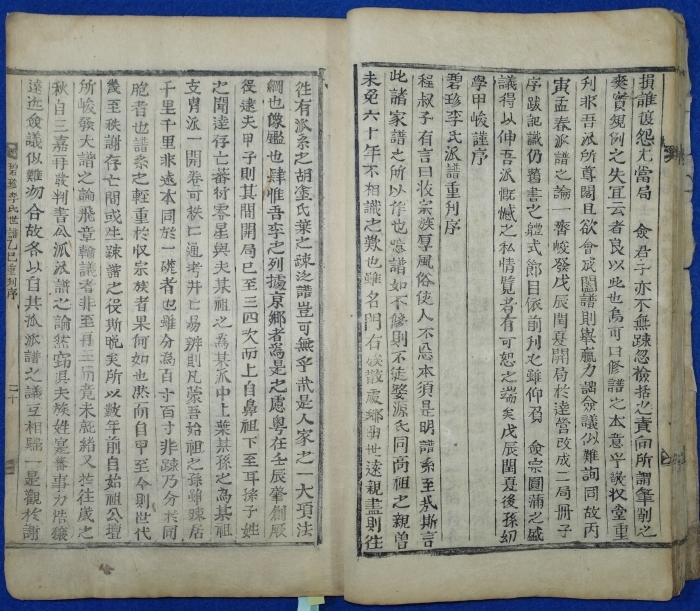 損誰復怨尤當局 僉君子亦不無疎忽檢搭之責向所謂筆削之
爽實規例之失宜云者良以此也烏可曰修譜之本意乎議收堂重
刊非吾派所專關且欲會成闔譜則擧贏力詘僉議似難詢同故丙
寅孟春派譜之論一番峻發戊辰閏夏開局於達營改成二局冊子
序跋記識仍舊書之體式節目依前刊之雖仰芻 僉宗團蒲之盛
議得以伸吾派慨憾之私情覽者有可恕之端矣戊辰閏夏後孫
學甲峻謹序
碧珍李氏派譜重刊序
程叔子有言曰收宗族厚風俗使人不忘本須是明譜系至哉斯言
此諸家譜之所以作也噫譜如不修則不徒娶源氏同高祖之親曾
未免六十年不相識之歎也雖名門右族散處鄉卋世遠親盡則徃
徃有派系之胡塗氏葉之疎迃譜豈可無乎哉是人家之一大項法
綱也像鑑也肆惟吾李之列據京鄉者爲是之慮粤在壬辰肇刱厥
後逮夫甲子則其間開局已至三四次而上自鼻祖下至耳孫子姓
之聞達存亡蕃衍零星與夫某祖之爲某派中上葉某孫之爲某祖
支胄派一開卷可秩二通考井二易辨則凡蒙吾始祖之孫雖踈居
千里千里非遠本同於一禭者也雖分爲百寸百寸非踈乃分於同
胞者也譜系之輊重於收宗族者果何如也然而自甲至今則世代
幾至秩謝存亡間或生踈譜之役斯晩矣所以數年前自始祖公壇
所峻發大譜之論飛章輪議者非至再三而竟未就緖又於徃歲之
秋自三嘉再裁判書公派派譜之論然窃惧夫族姓寔蕃事力浩穰
遠近僉議似難沕合故各以自其派派譜之議互相歸一是觀於謝
碧珍李氏世譜乙巳重刊序 二十